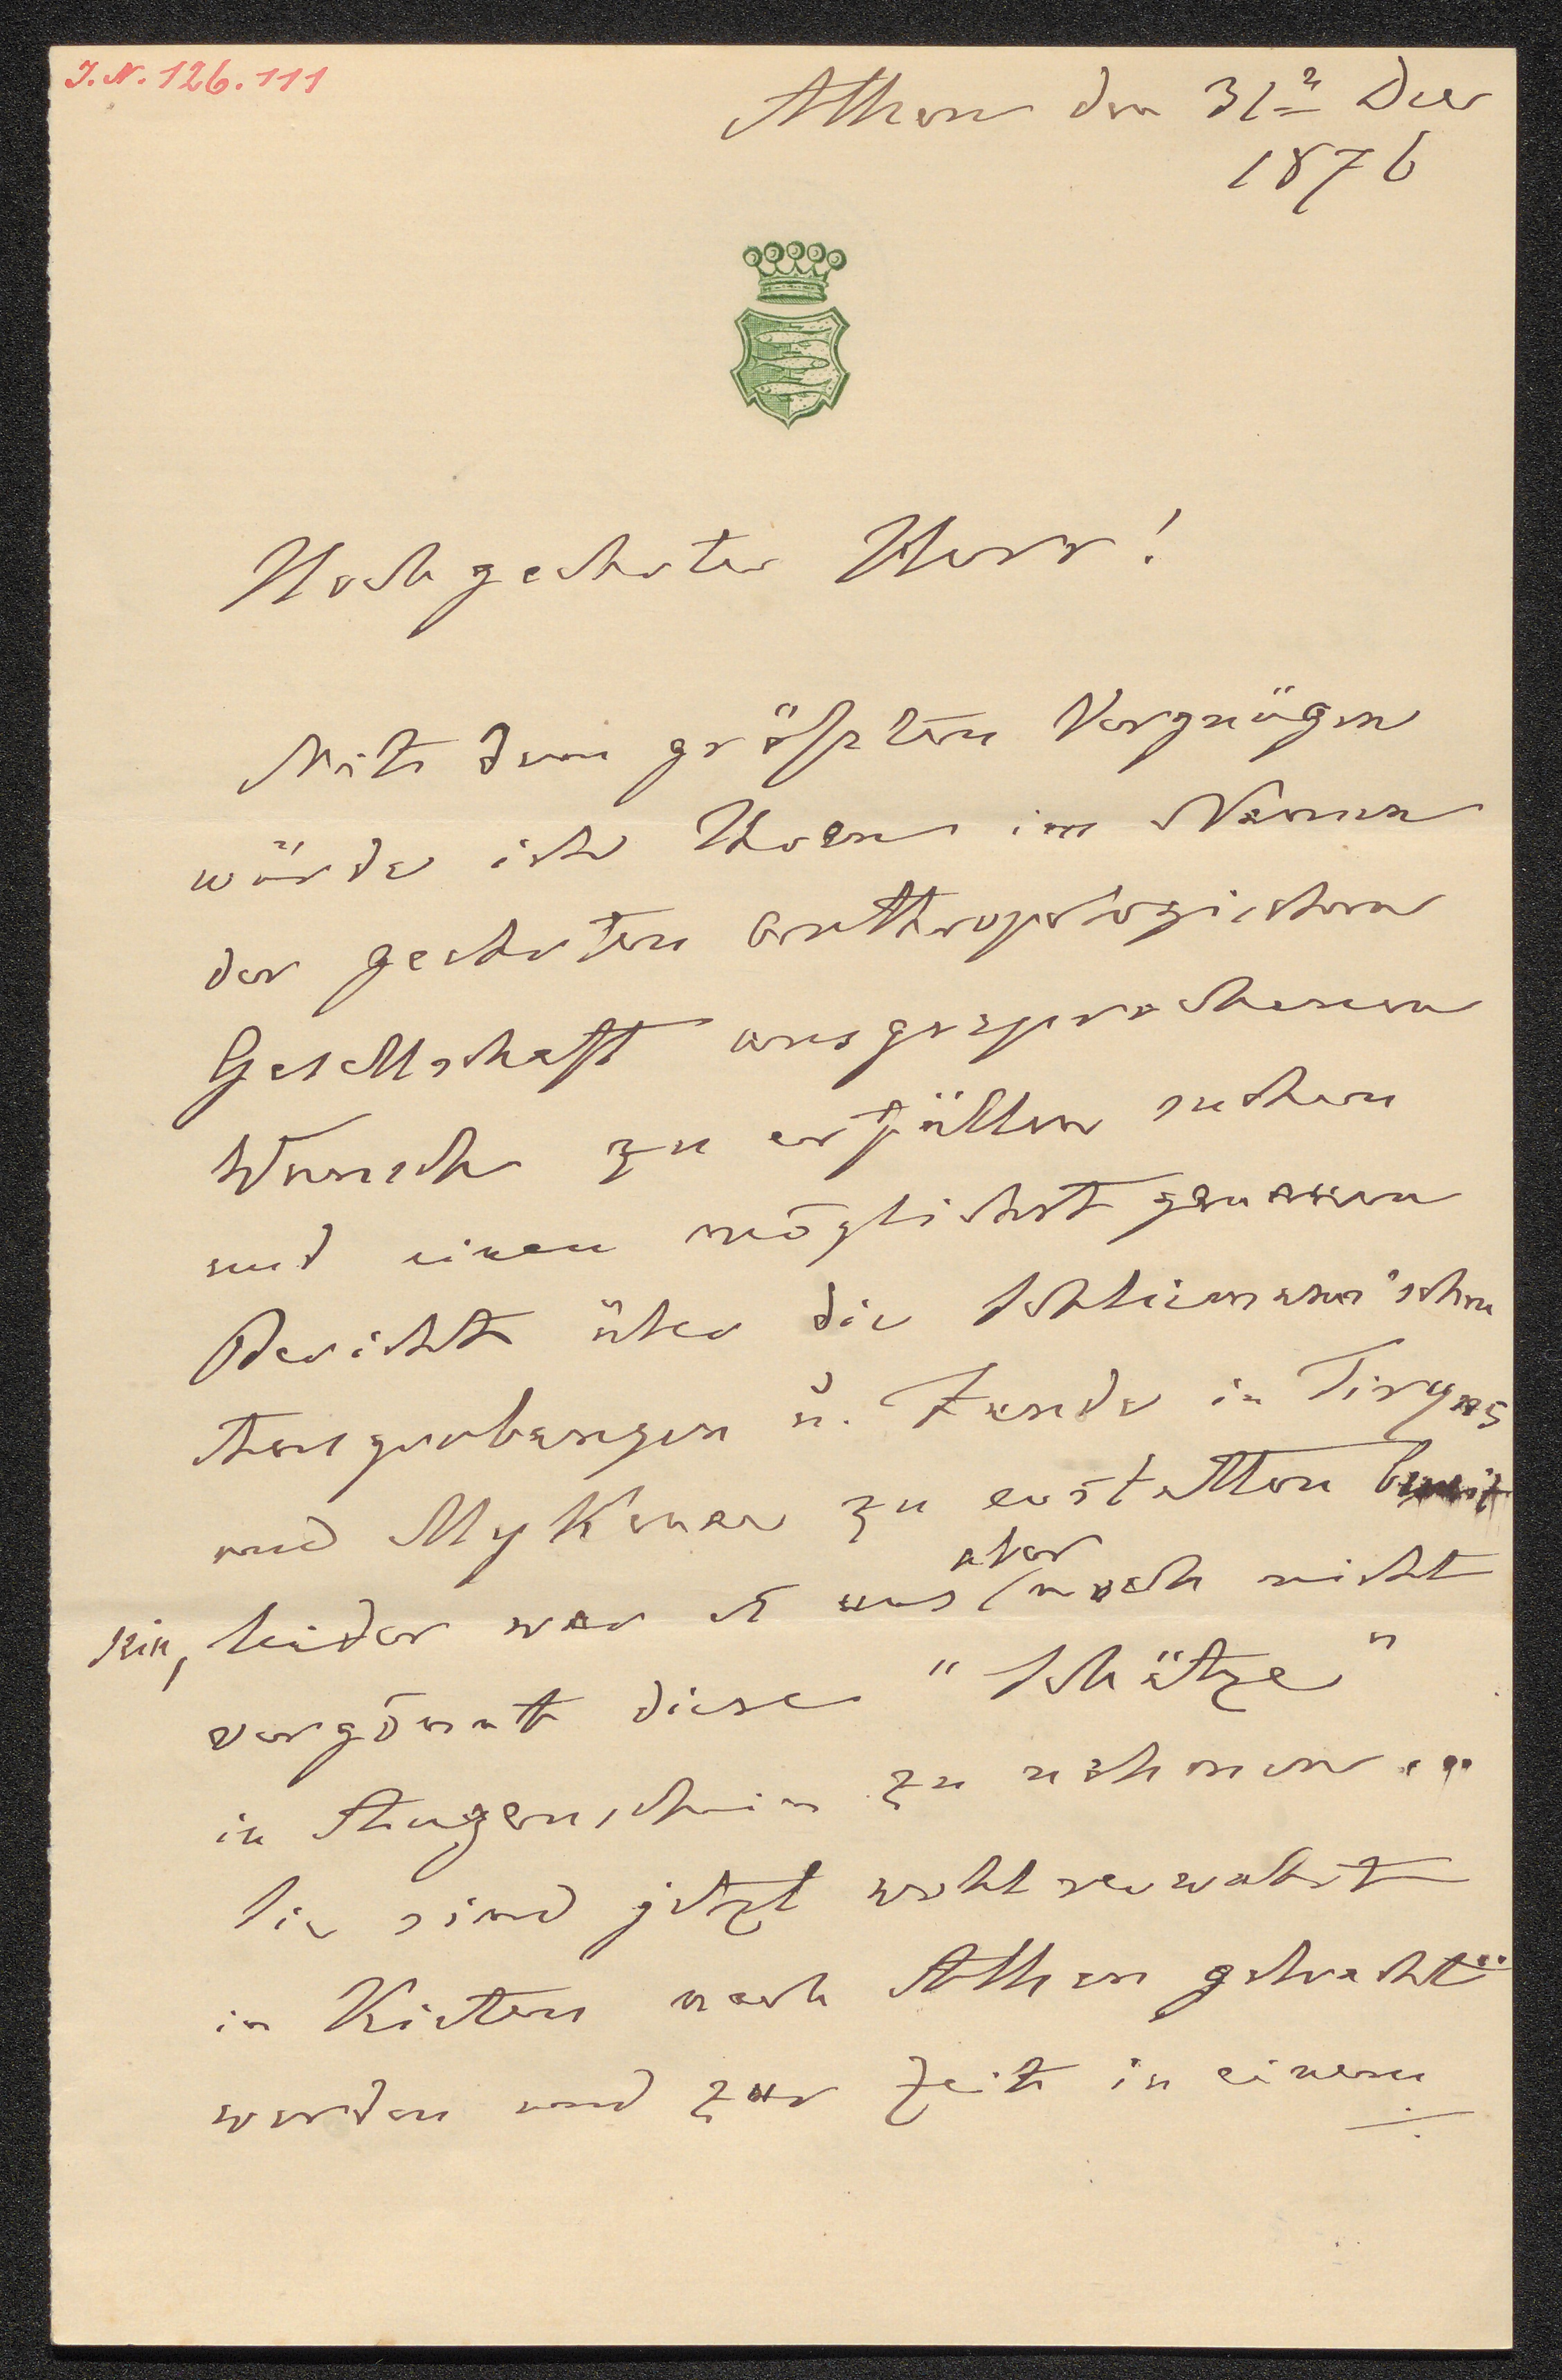 J.N. 126.111
Athen den 31ⁿ Dec
1876
Hochgeehrter Herr!
Mit dem größten Vergnügen
würde ich Ihren im Namen
der geehrten anthropologischen
Gesellschaft ausgesprochenen
Wunsch zu erfüllen suchen
und einen möglichst genauen
Bericht über die Schliemann'schen
Ausgrabungen u. Funde in Tiryns
und Mykenae zu erstatten bereit
sein, leider war es uns aber noch nicht
vergönnt diese "Schätze"
in Augenschein zu nehmen...
Sie sind jetzt wohlverwahrt
in Kisten nach Athen gebracht
worden und zur Zeit in einem